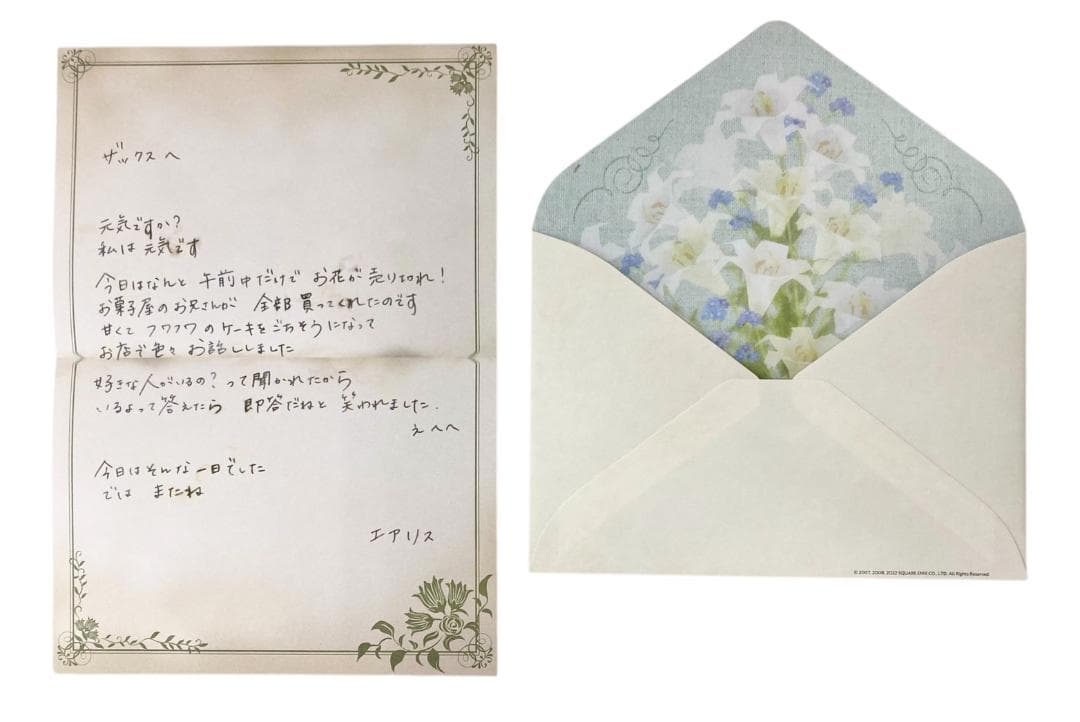 ザックスへ
元気ですか?
私は元気です
今日はなんと 午前中だけで お花が売り切れ!
お菓子屋のお兄さんが 全部買ってくれたのです
甘くて フワフワのケーキをごちそうになって
お店で色々お話ししました
好きな人がいるの?って聞かれたから
いるよって答えたら 即答だねと 笑われました.
えへへ
今日はそんな一日でした
では またね
エアリス
© 2007, 2008, 2022 SQUARE ENIX CO., LTD. All Rights Reserved.